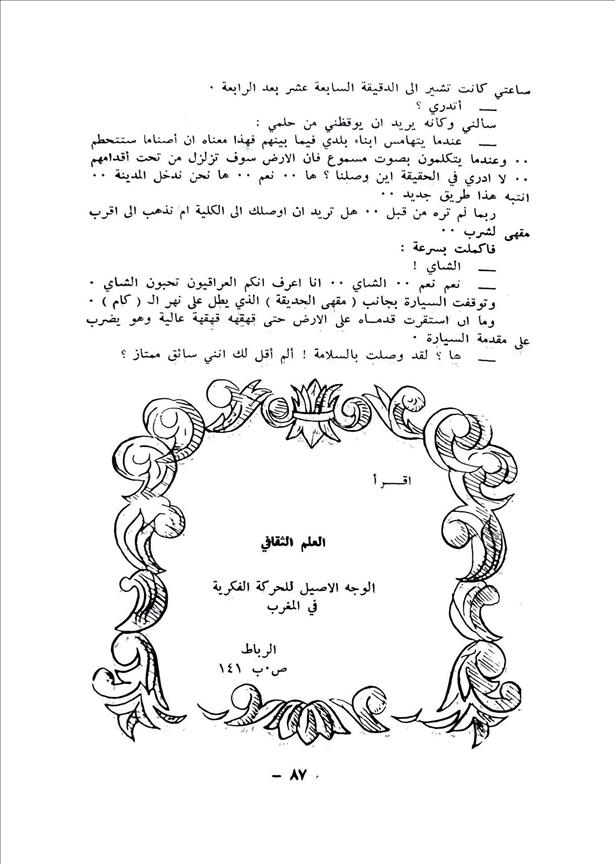 ساعتي كانت تشير الى الدقيقة السابعة عشر بعد الرابعة ٠
— أتدري ؟
سألني وكأنه يريد ان يوقظني من حلمي :
— عندما يتهامس ابناء بلدي فيما بينهم فهذا معناه ان أصناما ستتحطم
٠٠ وعندما يتكلمون بصوت مسموع فان الارض سوف تزلزل من تحت أقدامهم
٠٠ لا ادري في الحقيقة اين وصلنا ؟ ها ٠٠ نعم ٠٠ ها نحن ندخل المدينة ٠٠
انتبه هذا طريق جديد ٠٠
ربما لم تره من قبل ٠٠ هل تريد ان اوصلك الى الكلية ام نذهب الى اقرب
مقهى لشرب ٠٠
فاكملت بسرعة :
— الشاي !
— نعم نعم ٠٠ الشاي ٠٠ انا اعرف انكم العراقيون تحبون الشاي ٠
وتوقفت السيارة بجانب ( مقهى الحديقة ) الذي يطل على نهر الـ ( كام ) ٠
وما ان استقرت قدماه على الارض حتى قهقهه قهقهة عالية وهو يضرب
على مقدمة السيارة ٠
— ها ؟ لقد وصلت بالسلامة ! ألم أقل لك انني سائق ممتاز ؟
اقــرأ
العلم الثقافي
الوجه الاصيل للحركة الفكرية
في المغرب
الرباط
ص٠ب ١٤١
٨٧ —